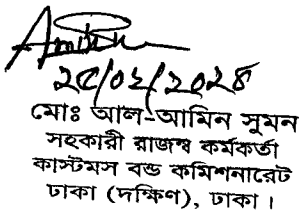 ২৫/০২/২০২৪
মোঃ আল-আমিন সুমন
সহকারী রাজস্ব কর্মকর্তা
কাস্টমস বন্ড কমিশনারেট
ঢাকা (দক্ষিণ), ঢাকা।